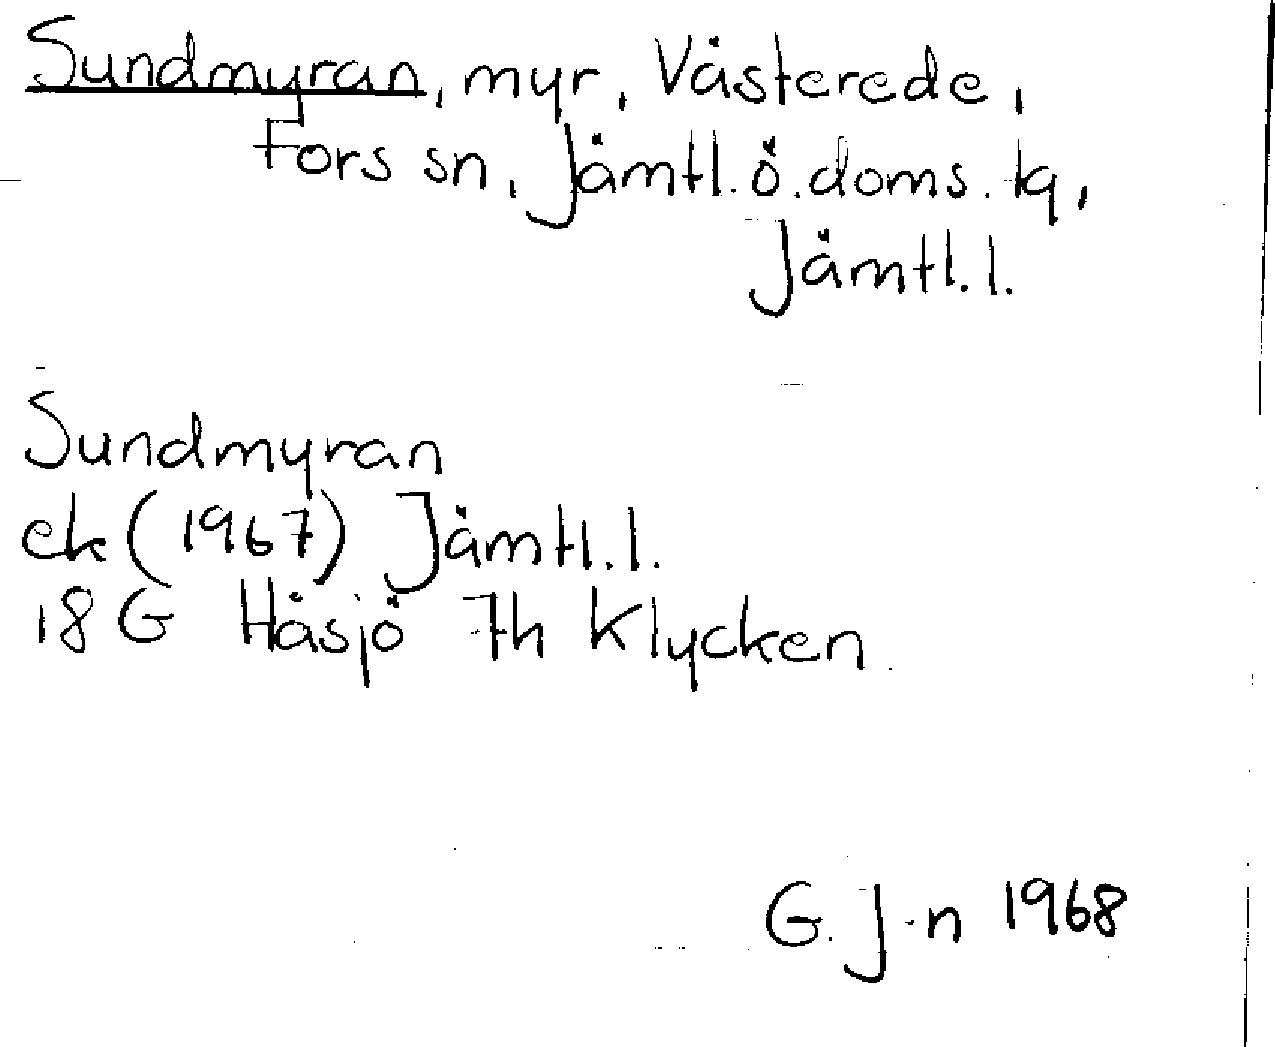 Sundmyran, myr, Västerede,
Fors sn, Jämtl. ö. doms. tg,
Jämtl. l.
Sundmyran
ek (1967) Jämtl. l.
18 G Håsjö 7h Klycken.
G. J-n 1968